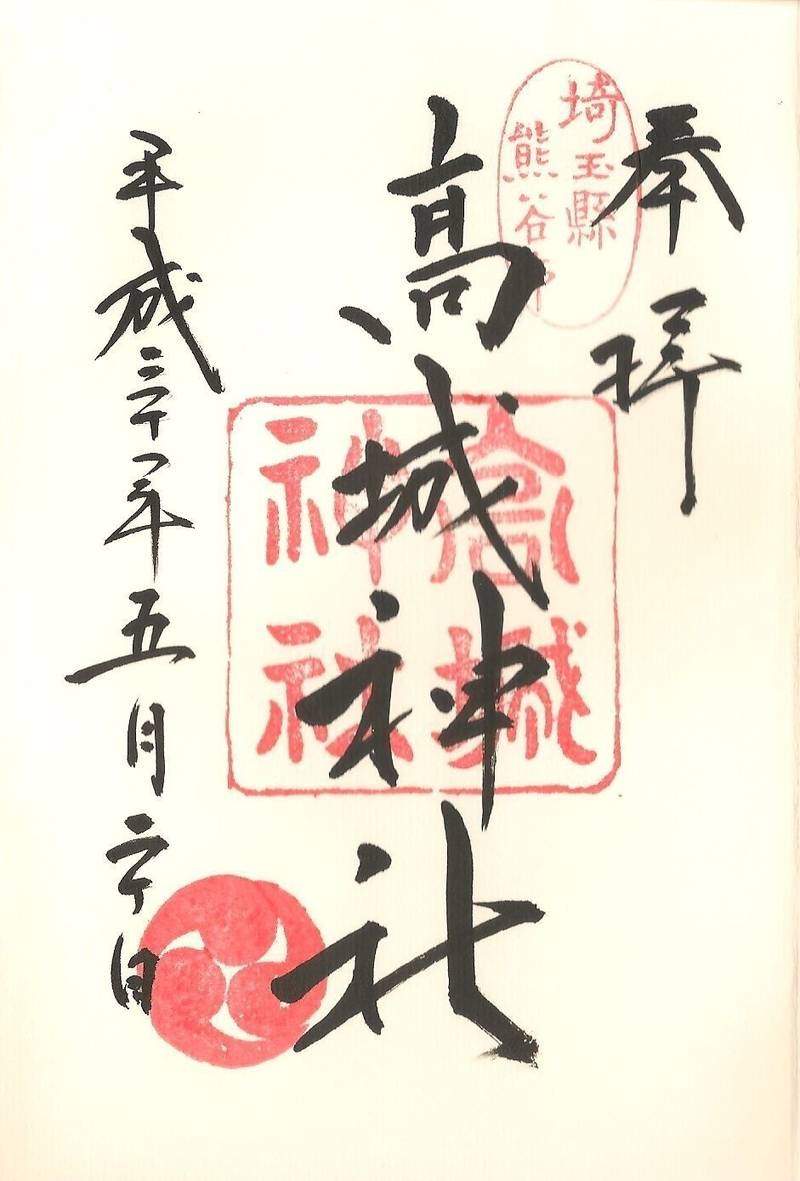 奉拝
埼玉縣
熊谷市
高城神社
高城
神社
平成二十一年五月二十日